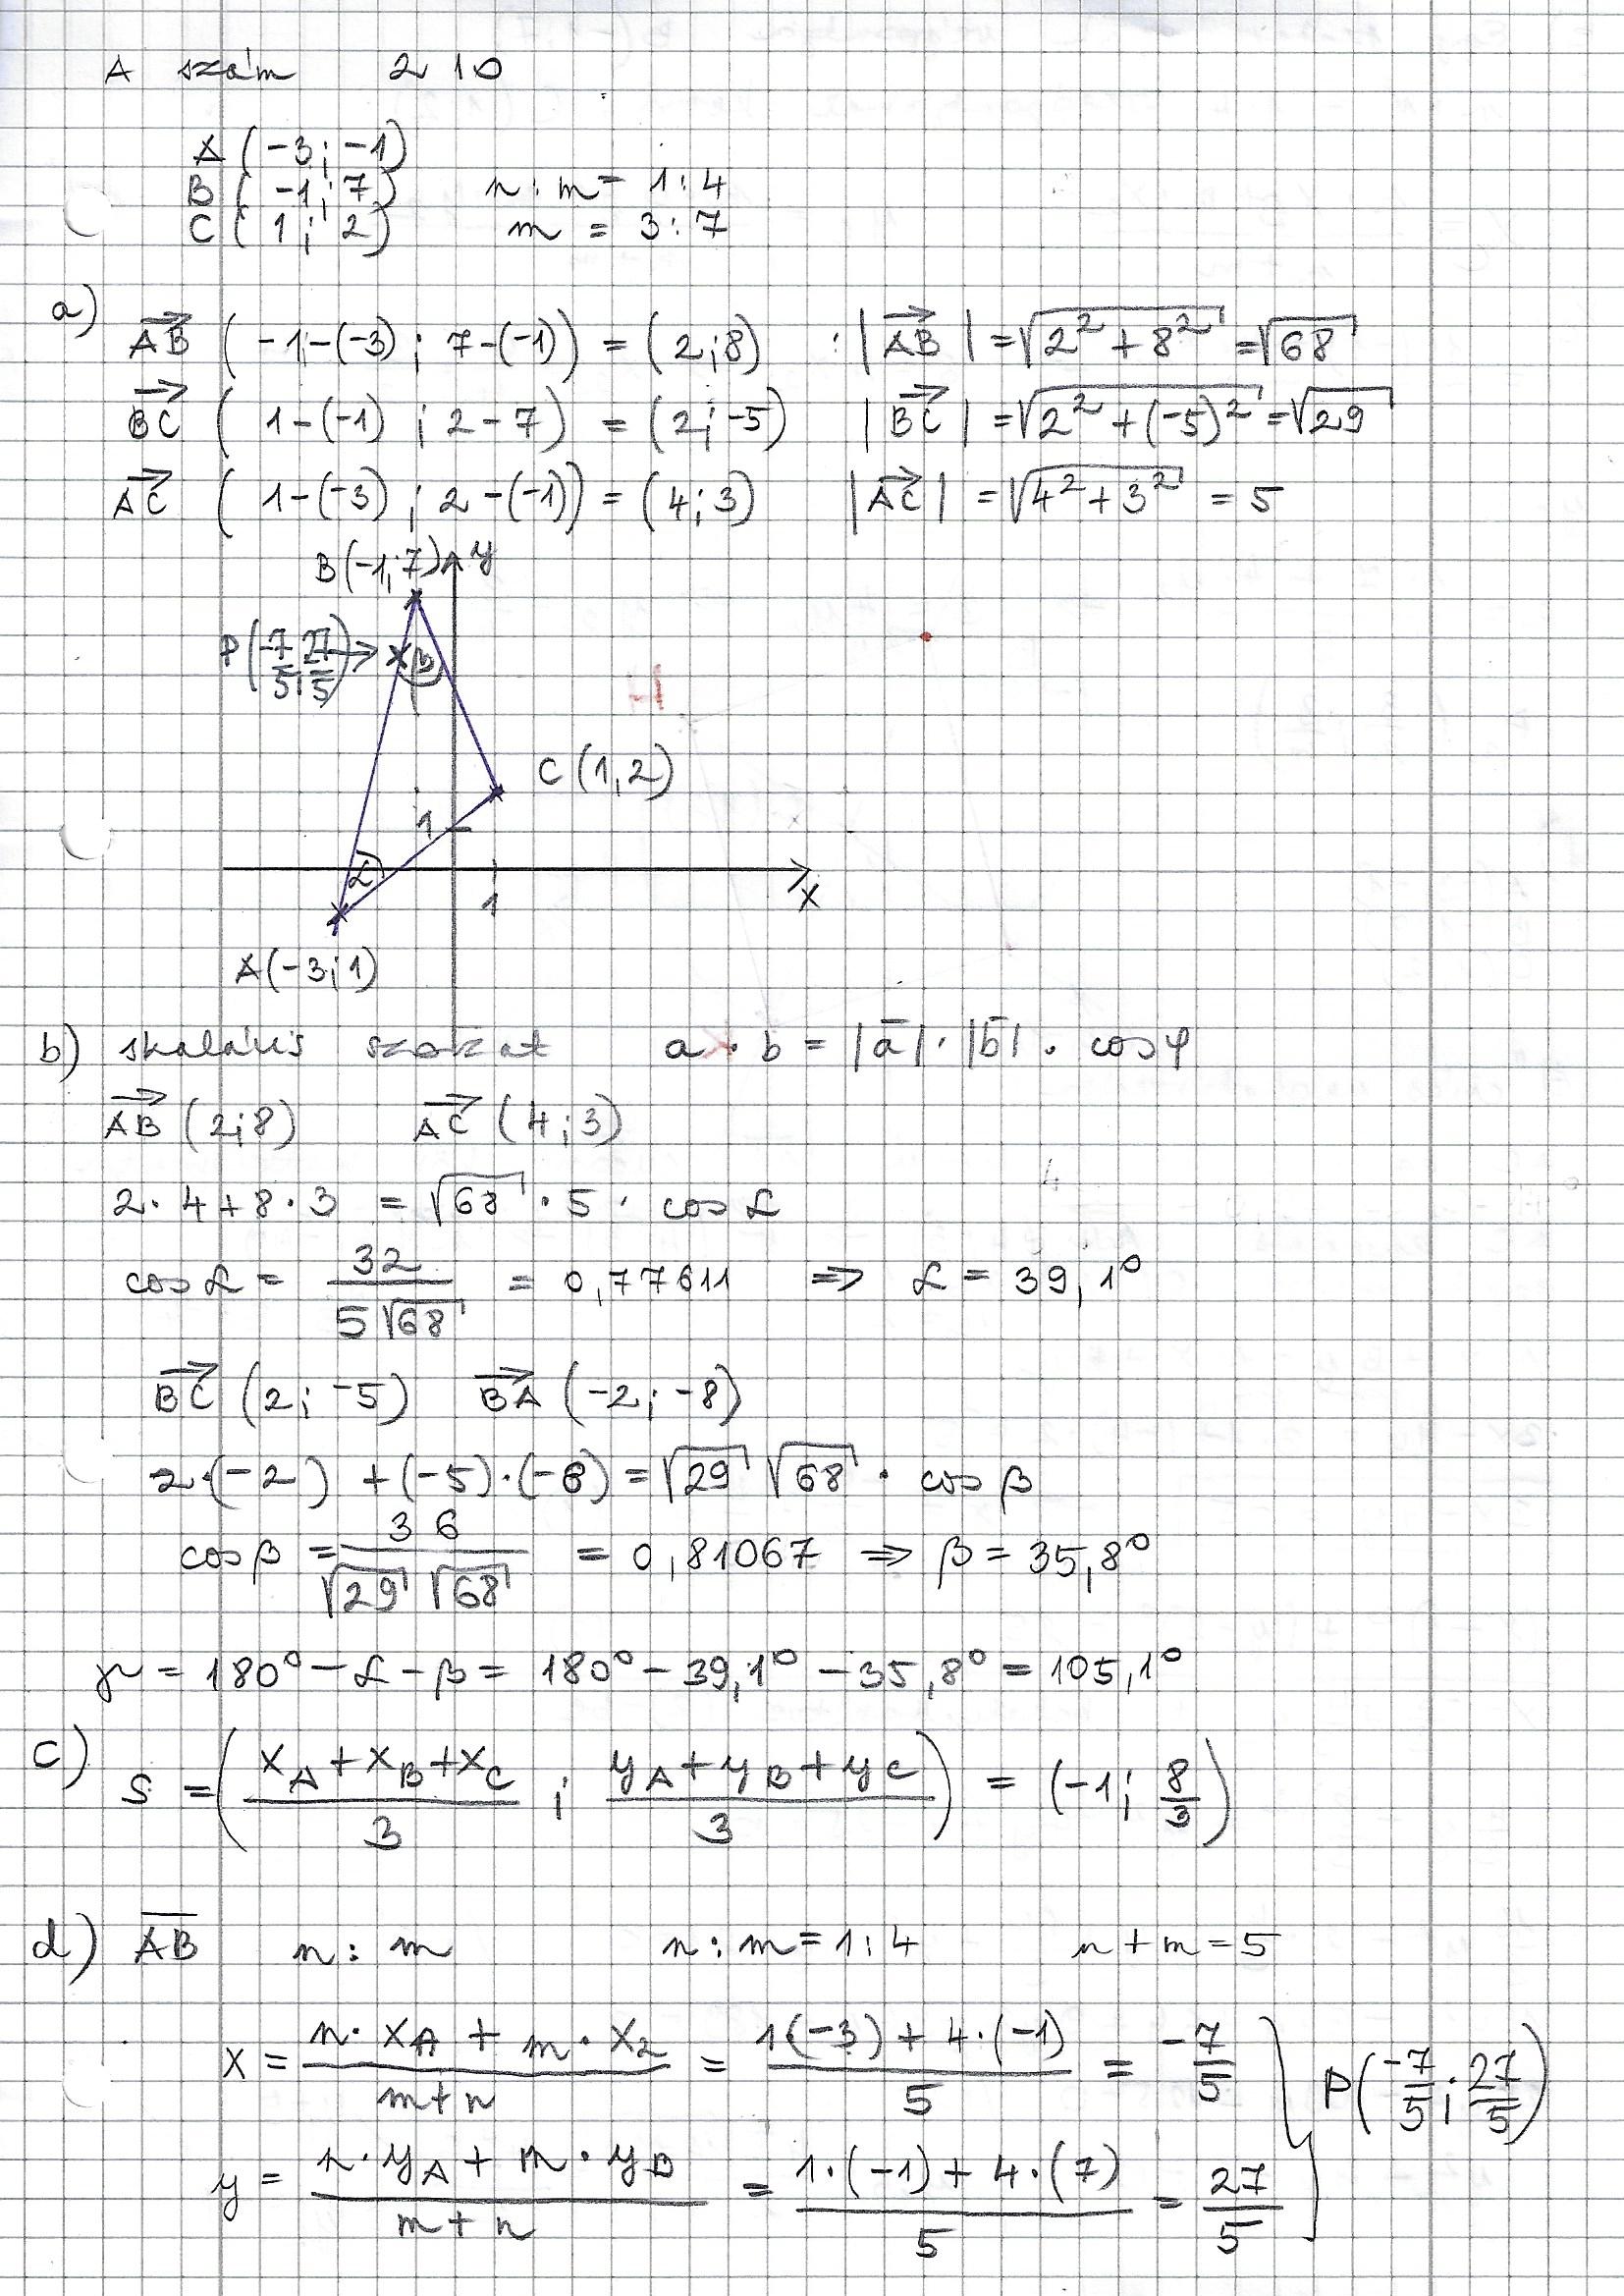 A szám 2 10
A(-3;-1)
B(-1;7) n:m = 1:4
C(1;2) m = 3:7
a)
AB→ (-1-(-3); 7-(-1)) = (2;8) : |AB→| = √(2² + 8²) = √68
BC→ (1-(-1); 2-7) = (2;-5) |BC→| = √(2² + (-5)²) = √29
AC→ (1-(-3); 2-(-1)) = (4;3) |AC→| = √(4² + 3²) = 5
B(-1;7) y
P(-7/5; 27/5) → β
C(1,2)
1
α
1 x
A(-3;1)
b) skaláris szorzat a · b = |a̅| · |b̅| · cos φ
AB→ (2;8) AC→ (4;3)
2·4 + 8·3 = √68 · 5 · cos α
cos α = 32/(5√68) = 0,77611 ⇒ α = 39,1°
BC→ (2;-5) BA→ (-2;-8)
2·(-2) + (-5)·(-8) = √29 √68 · cos β
cos β = 36/(√29 √68) = 0,81067 ⇒ β = 35,8°
γ = 180° - α - β = 180° - 39,1° - 35,8° = 105,1°
c) S = ((x_A + x_B + x_C)/3 ; (y_A + y_B + y_C)/3) = (-1; 8/3)
d) A̅B̅ n:m n:m = 1:4 n+m = 5
x = (n·x_A + m·x_2)/(m+n) = (1(-3) + 4·(-1))/5 = -7/5 } P(-7/5; 27/5)
y = (n·y_A + m·y_B)/(m+n) = (1·(-1) + 4·(7))/5 = 27/5